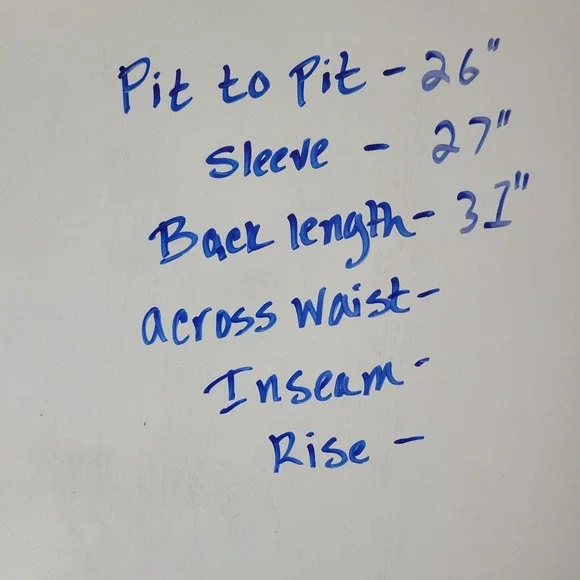 Pit to Pit - 26"
Sleeve - 27"
Back length - 31"
across Waist -
Inseam -
Rise -